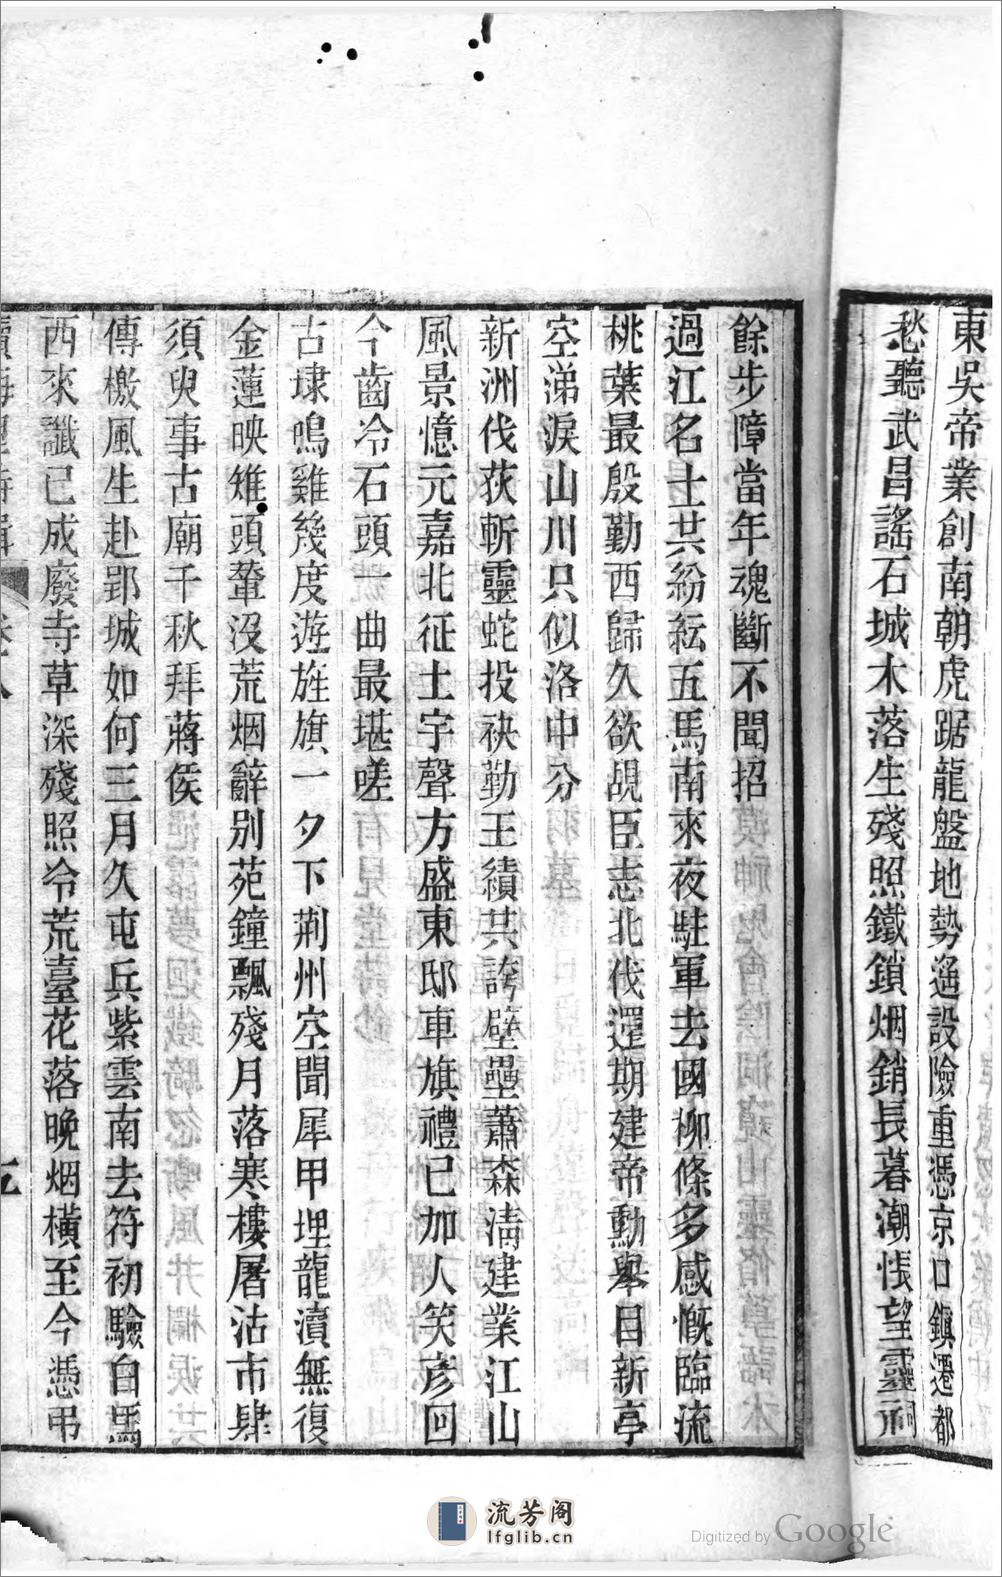 東吳帝業創南朝虎踞龍盤地勢遥設險重憑京口鎮遷都
愁聽武昌謠石城木落生殘照鐵鎖烟銷長暮潮悵望靈祠
餘步障當年魂斷不聞招
過江名士共紛紜五馬南來夜駐軍去國柳條多感慨臨流
桃葉最殷勤西歸久欲覘臣志北伐還期建帝勳舉目新亭
空涕淚山川只似洛中分
新洲伐荻斬靈蛇投袂勤王績共誇壁壘蕭森淸建業江山
風景憶元嘉北征土宇聲方盛東邸車旗禮已加人笑彥回
今齒冷石頭一曲最堪嗟
古埭鳴雞幾度遊旌旗一夕下荆州空聞犀甲埋龍瀆無復
金蓮映雉頭輦沒荒烟辭别苑鐘飄殘月落寒樓屠沽市肆
須臾事古廟千秋拜蔣侯
傳檄風生赴郢城如何三月久屯兵紫雲南去符初驗白馬
西來讖已成廢寺草深殘照冷荒臺花落晚烟橫至今憑弔
流芳阁
lfglib.cn
Digitized by Google